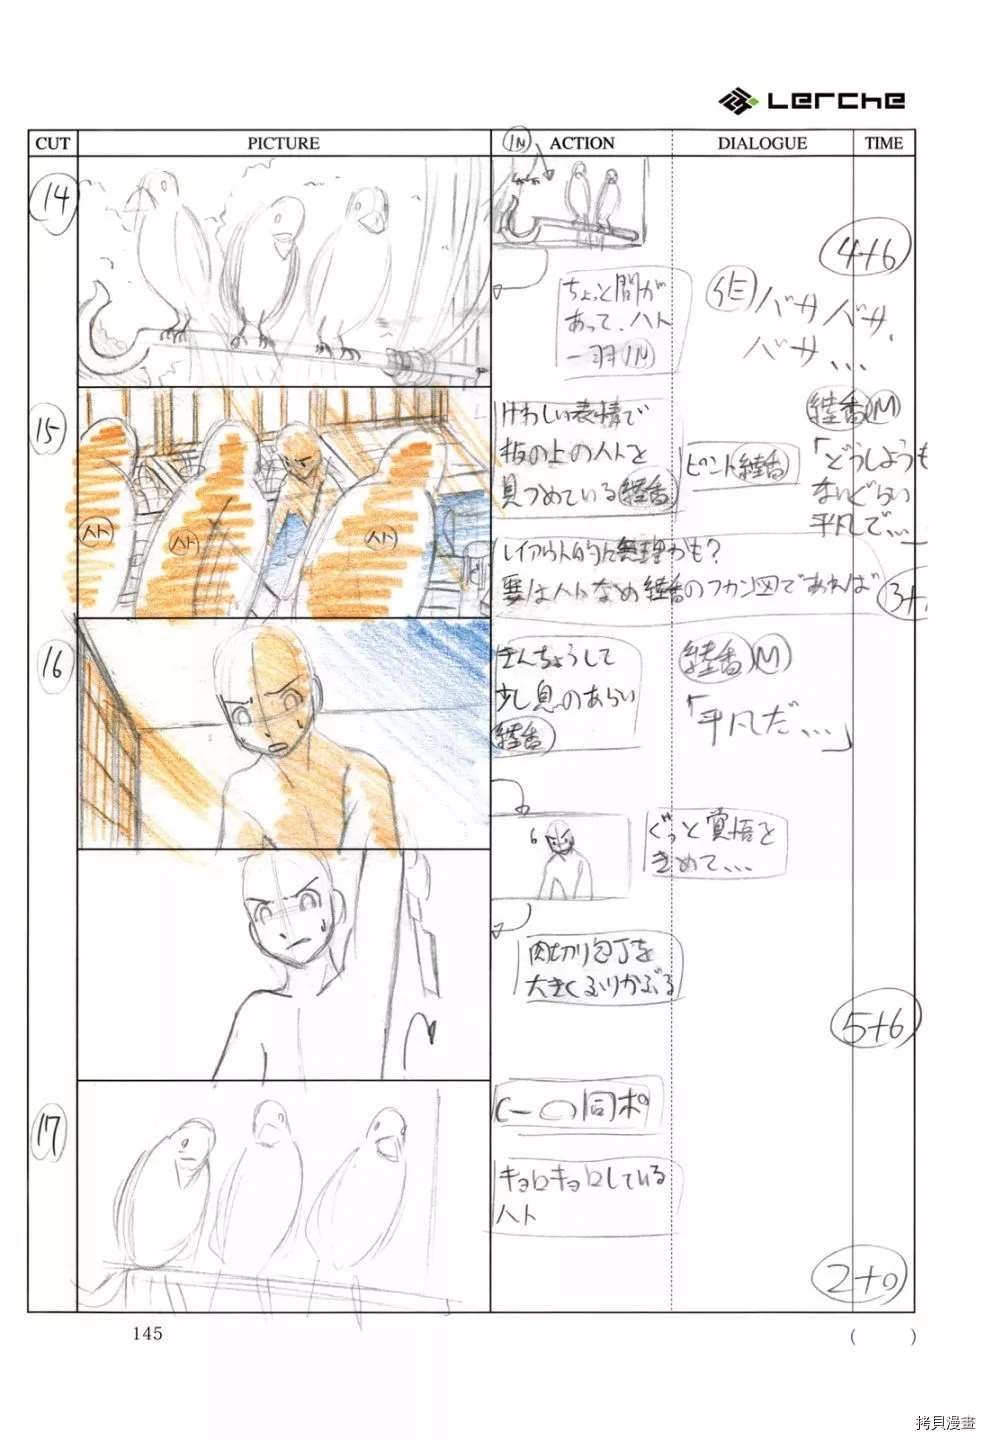 Lerche
CUT
PICTURE
ACTION
DIALOGUE
TIME
14
IN
ちょっと間が
あって、ハト
一羽IN
バサバサ、
バサ、、、
4+6
15
ハト
ハト
ハト
けわしい表情で
板の上のハトを
見つめている
ピント
M
「どうしようも
ないぐらい
平凡で、、、」
レイアウト的に無理かも?
要はハトなめ
のフカン図であれば
3+
16
きんちょうして
少し息のあらい
M
「平凡だ、、、」
ぐっと覚悟を
きめて、、、
肉切り包丁を
大きくふりかぶる
5+6
17
の同ポ
キョロキョロしている
ハト
2+0
145
( )
拷貝漫畫